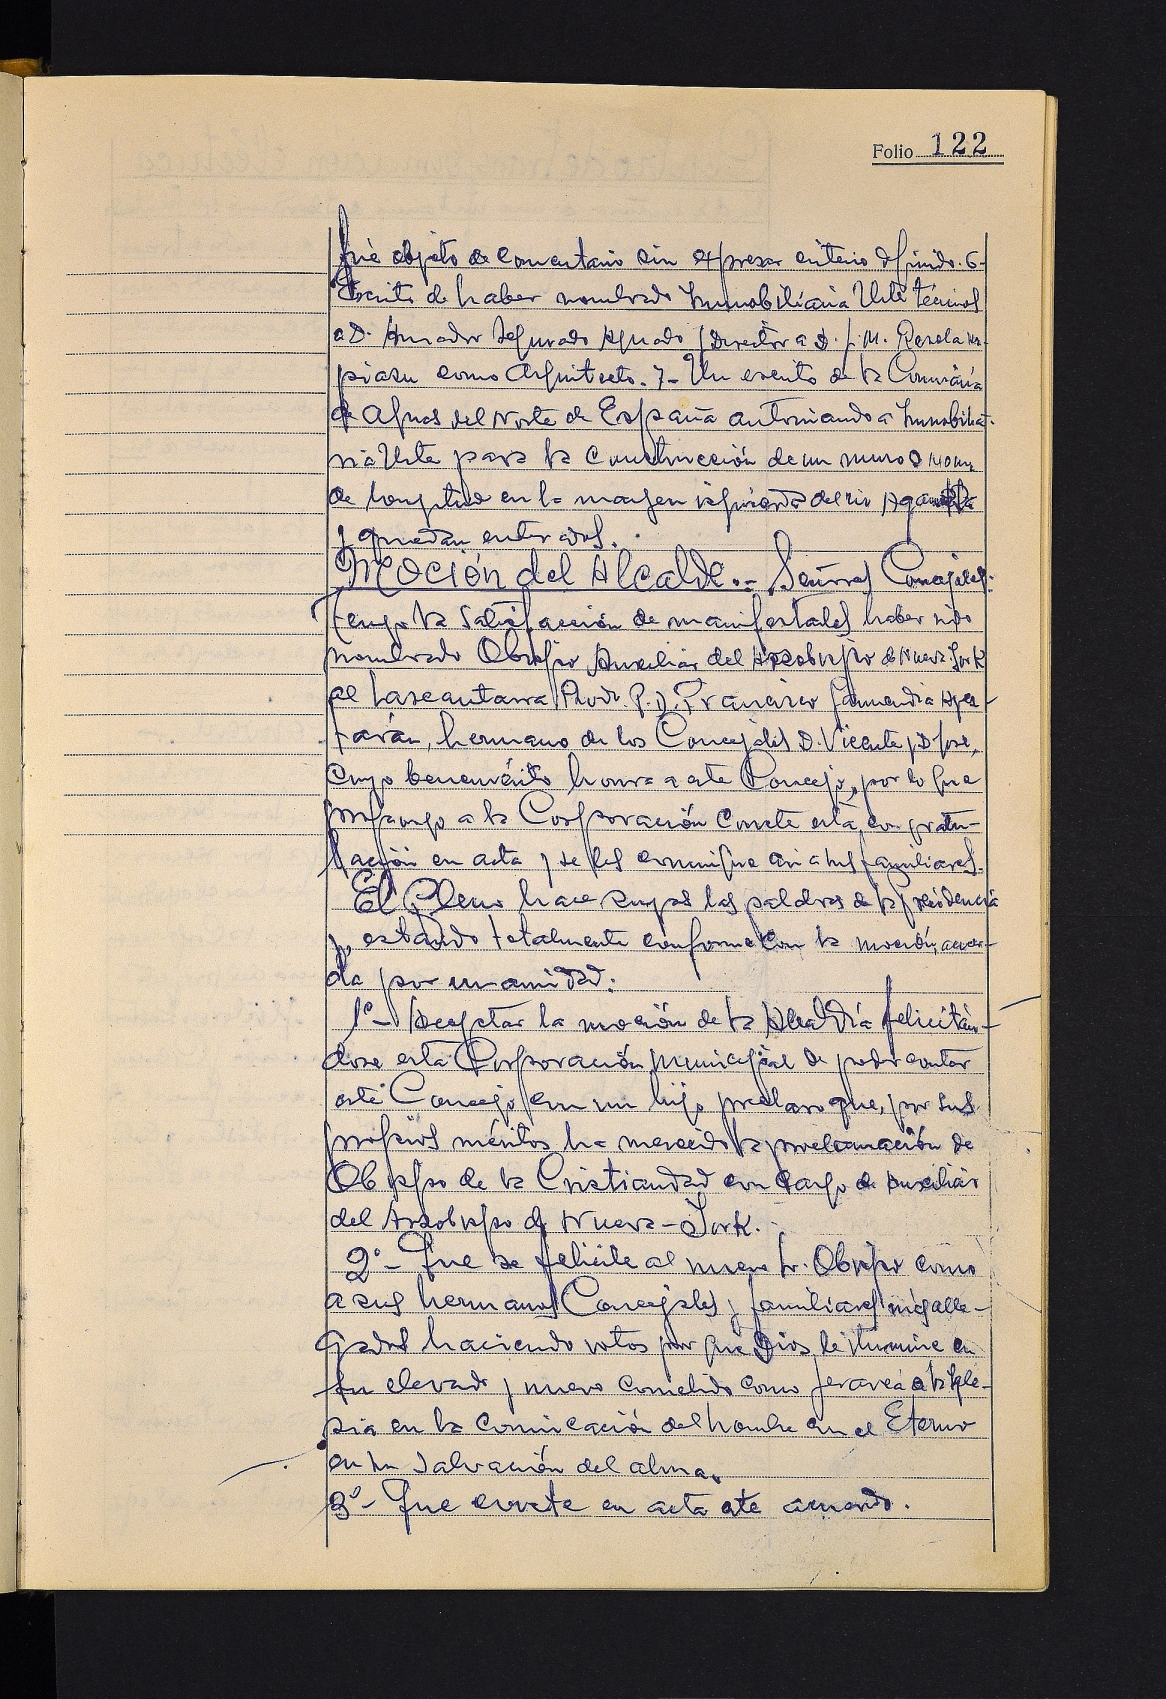 Folio 122
fué objeto de comentario sin expresar criterio definido. 6-
Escrito de haber nombrado Inmobiliaria Urte técnicos
a D. Amador Segurado Aguado y Director a D. J. M.
como Arquitecto. 7- Un escrito de la Comisaría
de Aguas del Norte de España autorizando a Inmobilia-
ria Urte para la construcción de un muro
de longitud en la margen izquierda del rio
y quedan enterados.
Moción del Alcalde.- Señores Concejales:
Tengo la satisfacción de manifestarles haber sido
nombrado Obispo Auxiliar del Arzobispo de Nueva York
el Lazcautarra Rvdo. P. D. Francisco Garmendia Ayes-
tarán, hermano de los Concejales D. Vicente y D. Jose,
cuyo benemérito honra a este Concejo, por lo que
propongo a la Corporación conste esta congratu-
lación en acta y se les comunique asi a sus familiares.
El Pleno hace suyas las palabras de la Presidencia
y, estando totalmente conforme con la moción, acuer-
da por unanimidad:
1º- Aceptar la moción de la Alcaldía felicitán-
dose esta Corporación Municipal de poder contar
este Concejo con un hijo preclaro que, por sus
propios méritos ha merecido la proclamación de
Obispo de la Cristiandad con cargo de auxiliar
del Arzobispo de Nueva-York.
2º- Que se felicite al nuevo Sr. Obispo como
a sus hermanos Concejales y familiares más alle-
gados haciendo votos por que Dios le ilumine en
su elevado y nuevo cometido como jerarca de la Igle-
sia en la comunicación del hombre en el Eterno
en su salvación del alma.
3º- Que conste en acta este acuerdo.